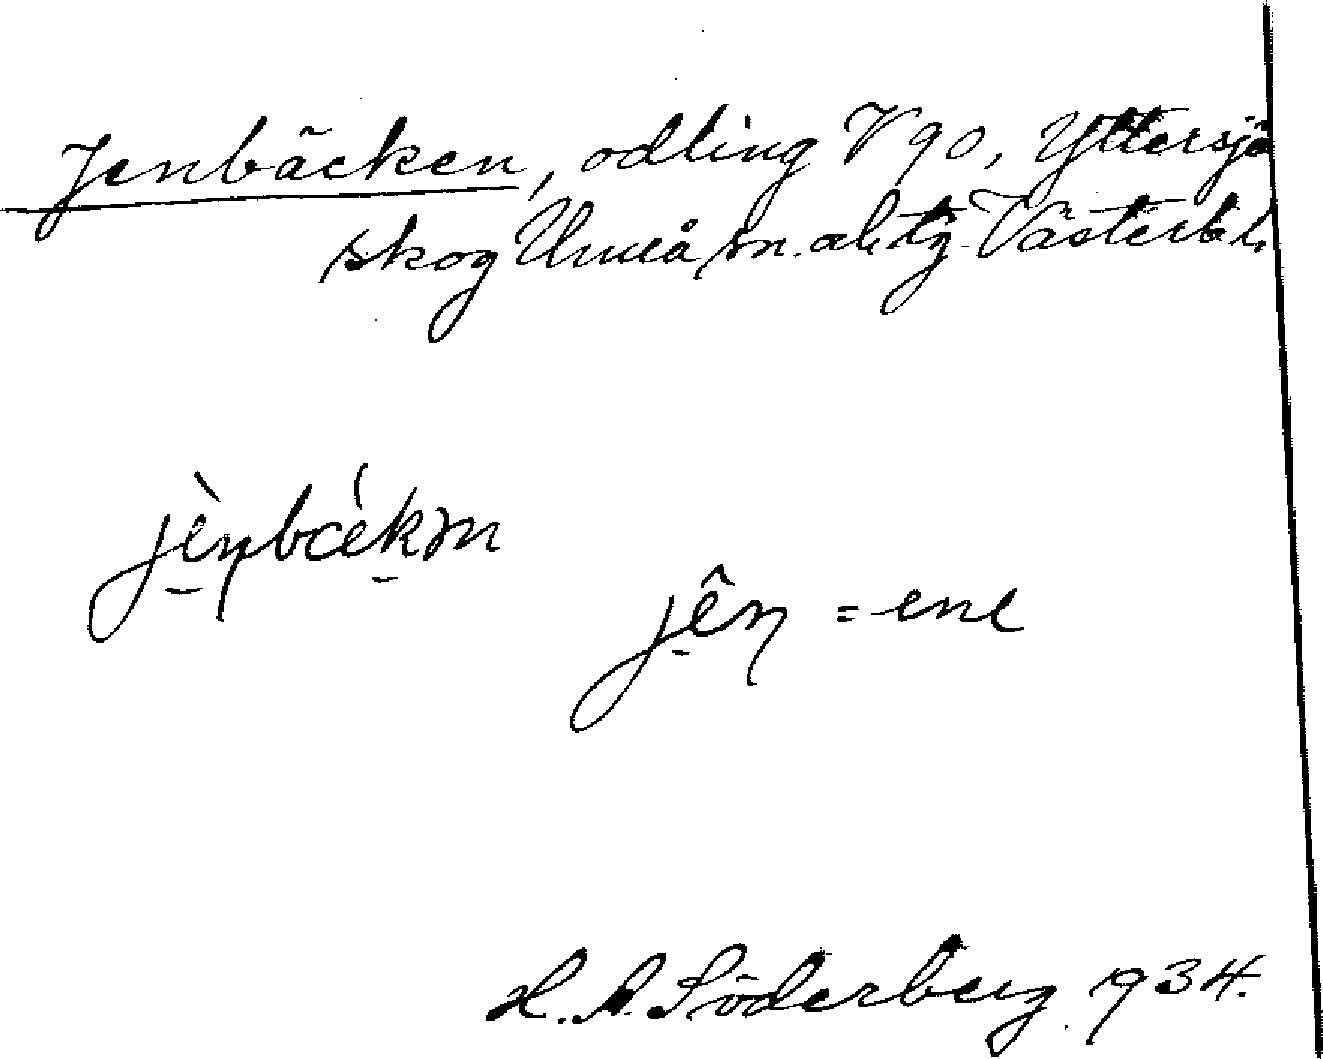 Jenbäcken, odling V 90, Yttersjö
skog Umeå sn. o. ltg. Västerb. l.
jèṇbǽkən
jêṇ = ene
H. A. Söderberg 1934.